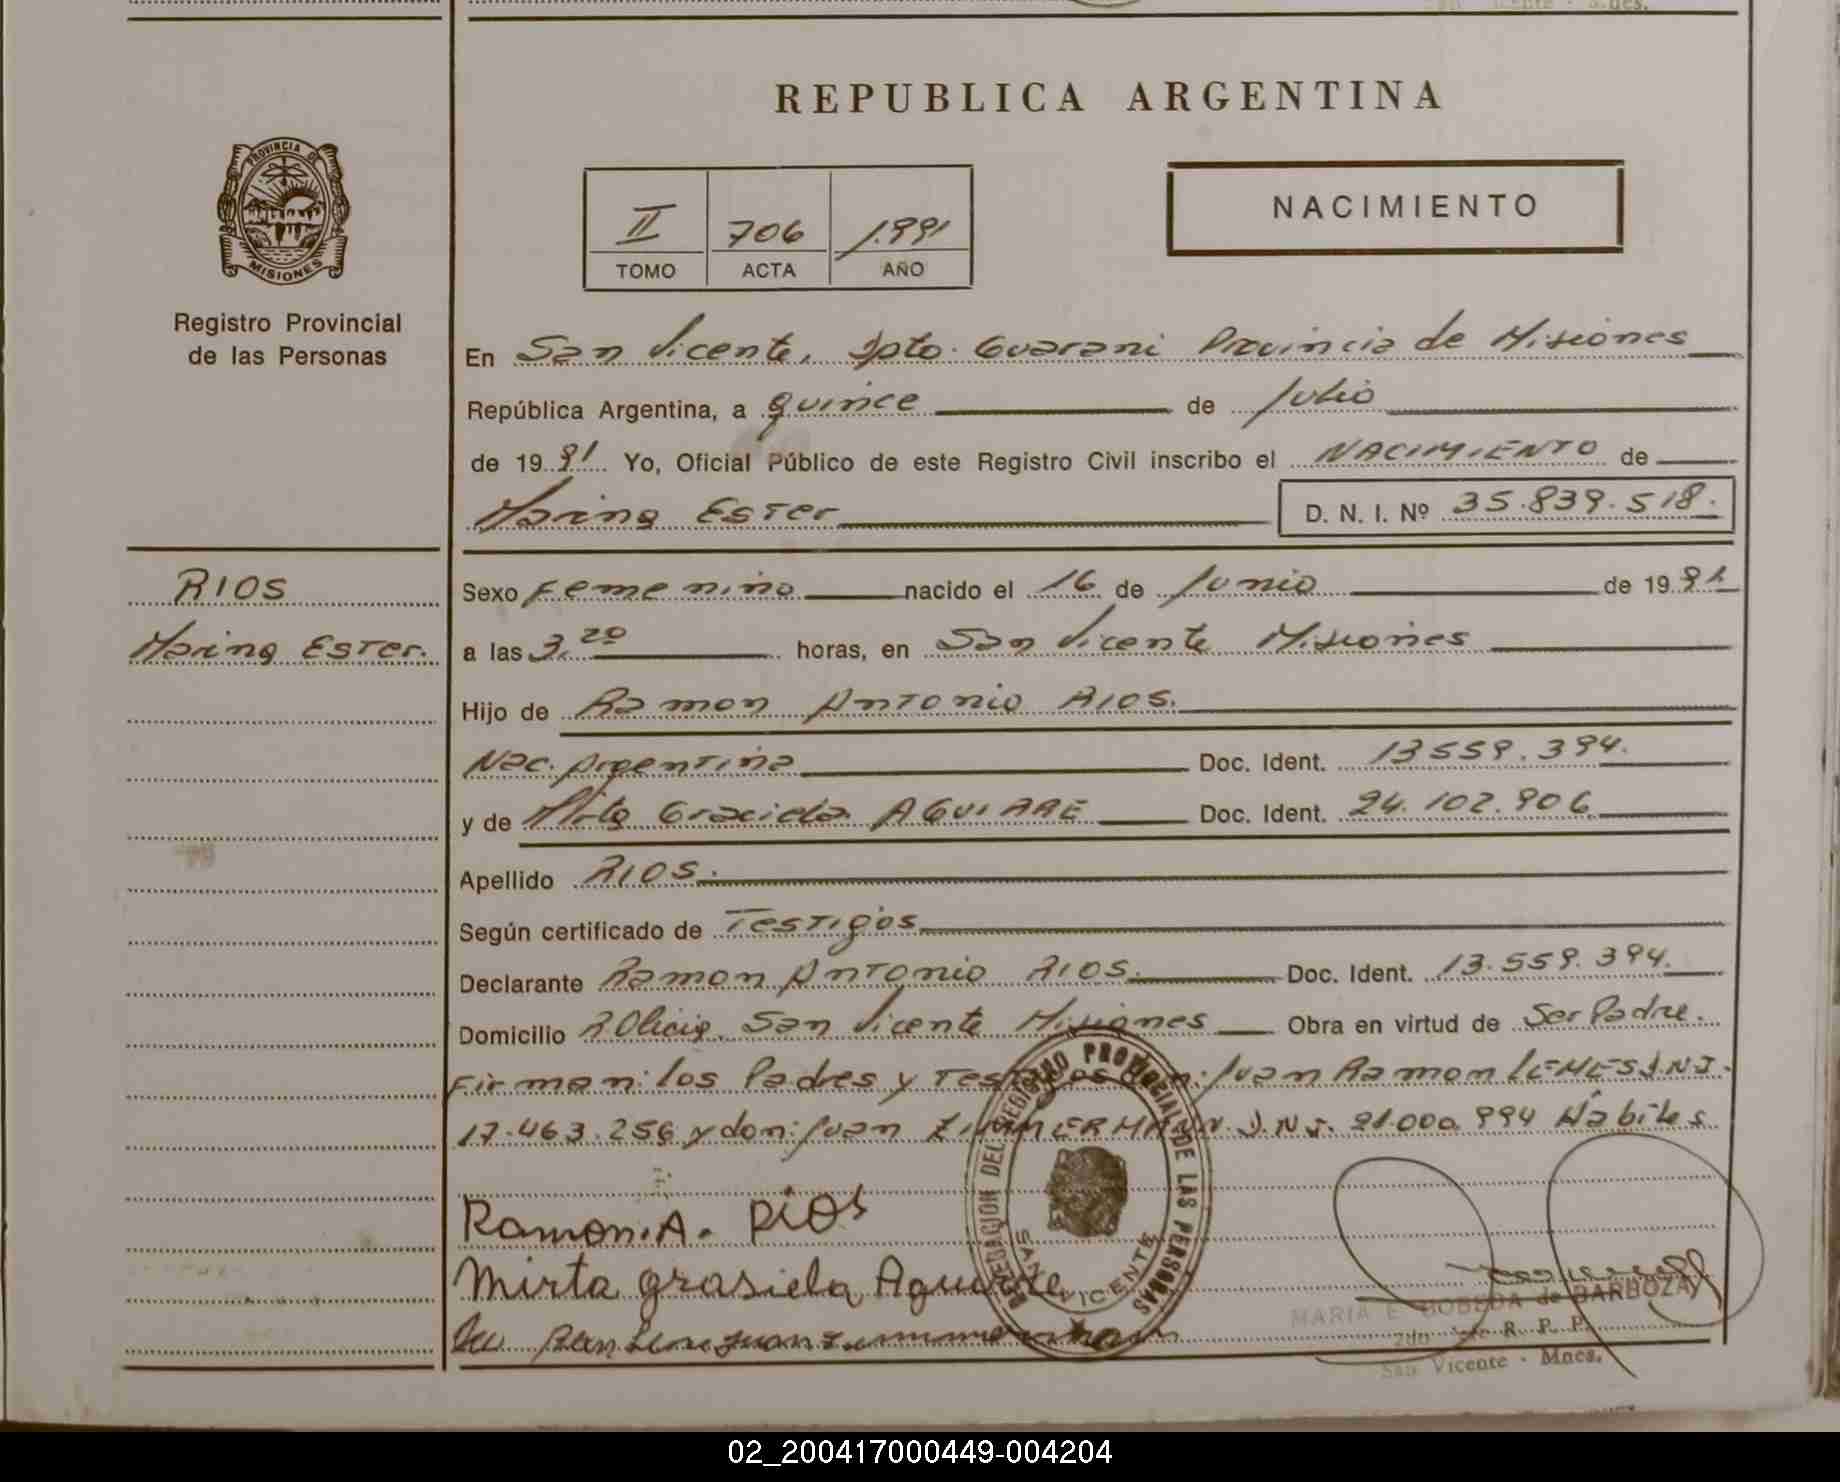 REPUBLICA ARGENTINA
PROVINCIA DE
MISIONES
Registro Provincial
de las Personas
NACIMIENTO
II 706 1.991
TOMO ACTA AÑO
En San Vicente, Dpto. Guarani Provincia de Misiones
República Argentina, a quince de Julio
de 1991 Yo, Oficial Público de este Registro Civil inscribo el NACIMIENTO de
Marina ESTer D. N. I. Nº 35.839.518.
RIOS
Marina ESTer.
Sexo Femenino nacido el 16 de Junio de 1991
a las 3,20 horas, en San Vicente Misiones
Hijo de Ramon Antonio RIOS.
Nac. Argentina Doc. Ident. 13559.394.
y de Graciela AGUIRRE Doc. Ident. 24.102.906
Apellido RIOS.
Según certificado de Testigos
Declarante Ramon Antonio RIOS. Doc. Ident. 13.559.394.
Domicilio San Vicente Misiones Obra en virtud de Ser Padre.
Firman: los Padres y Testigos don: Juan Ramon LEMES D.N.I.
17.463.256 y don: Juan ZIMMERMANN D.N.I. 21.000.994 Habiles
Ramon.A. RIOS
Mirta grasiela Aguirre
DELEGACION DEL REGISTRO PROVINCIAL DE LAS PERSONAS
SAN VICENTE
MARIA E. BOBEDA de BARBOZA
2do R. P. P.
San Vicente - Mnes.
02_200417000449-004204